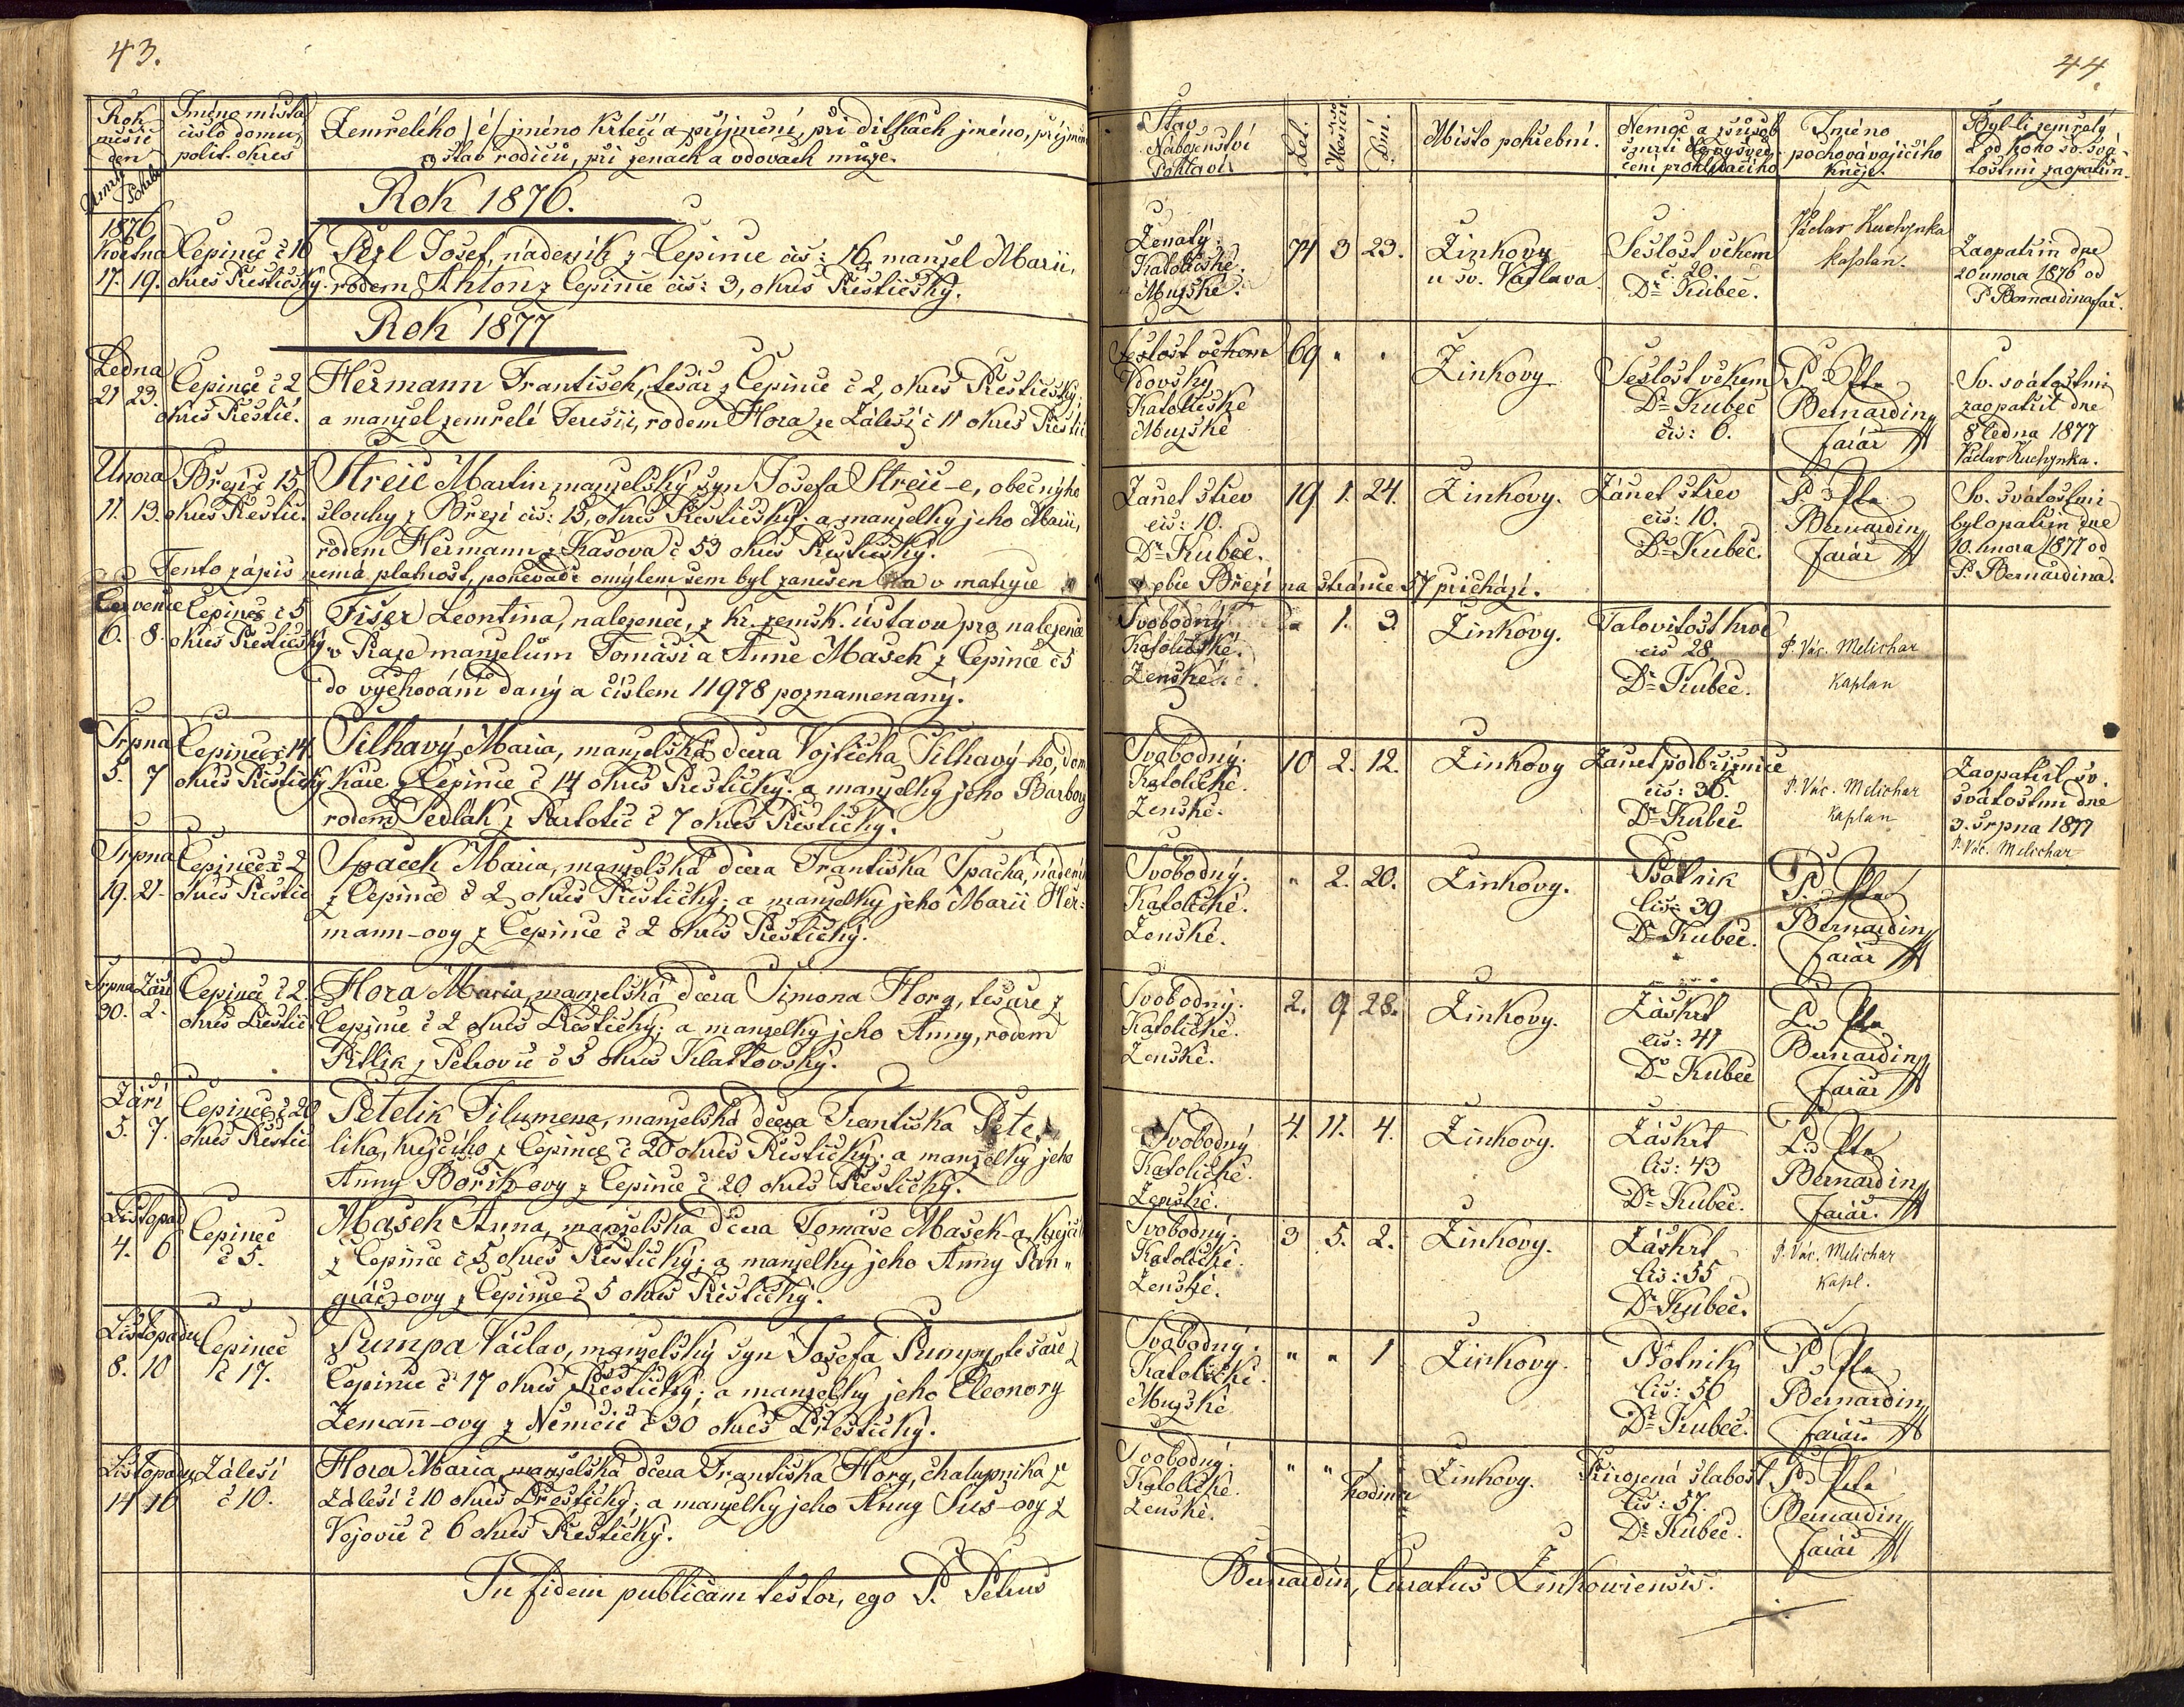 43.
Rok měsíc den
Umrtí Pohřbu
Jméno místa
číslo domu,
polit. okres
Zemřelého /é/ jméno křtecí a příjmení, při dítkách jméno, příjmení
a stav rodičů, při ženách a vdovách muže.
Rok 1876.
1876
Května
17. 19.
Čepinec č 16
okres Přestický.
Pezl Josef, nádeník z Čepince čís: 16, manžel Marii,
rodem z Čepince čís: 3, okres Přestický.
Rok 1877
Ledna
21 23.
Čepince č 2
okres Přestic.
Heřmann František, tesař z Čepince č 2, okres Přestický;
a manžel zemřelé Terezii, rodem Hora ze Zálesí č 11 okres Přestic
Února
11. 13.
Březí č 15,
okres Přestic.
Streič Martin manželský syn Josefa Streič-e, obecnýho
slouhy z Březí čís: 15, okres Přestický; a manželky jeho Marii,
rodem Heřmann z Kašova č 53 okres Přestický.
Tento zápis nemá platnost, poněvadž omylem sem byl zanešen a v matryce
Července
6. 8.
Čepinec č 5
okres Přestický
Fišer Leontina, nalezenec, z kr. zemsk. ústavu pro nalezence
v Praze manželům Tomáši a Anně Mašek z Čepince č 5
do vychování daný a číslem 11978 poznamenaný.
Srpna
5. 7
Čepinec č 14
okres Přestický
Šilhavý Maria, manželská dcera Vojtěcha Šilhavý-ho, dom
káře z Čepince č 14 okres Přestický: a manželky jeho Barbory
rodem Sedlák z Partotic č 7 okres Přestický.
Srpna
19. 21.
Čepinec č 2
okres Přestic
Špaček Maria, manželská dcera Františka Špačka, nádeníka
z Čepince č 2 okres Přestický; a manželky jeho Marii Heř-
mann-ovy z Čepince č 2 okres Přestický.
Srpna Září
30. 2.
Čepinec č 2.
okres Přestic
Hora Maria, manželská dcera Šimona Hory, tesaře z
Čepince č 2 okres Přestický; a manželky jeho Anny, rodem
Pitlik z Petrovic č 5 okres Klattovský.
Září
5. 7.
Čepinec č 20
okres Přestic
Petelik Filumena, manželská dcera Františka Pete-
lika, krejčího z Čepince č 20 okres Přestický: a manželky jeho
Anny Bořík-ovy z Čepince č 20 okres Přestický.
Listopad
4. 6
Čepinec
č 5.
Mašek Anna, manželská dcera Tomáše Mašek-a, krejčí
z Čepince č 5 okres Přestický; a manželky jeho Anny Pan-
grác-ovy z Čepince č 5 okres Přestický.
Listopadu
8. 10
Čepinec
č 17.
Pumpa Václav, manželský syn Josefa Pumpy, tesaře z
Čepince č 17 okres Přestický; a manželky jeho Eleonory
Zemann-ovy z Němčic č 30 okres Přestický.
Listopadu
14 16
Zálesí
č 10.
Hora Maria, manželská dcera Františka Hory, chalupníka ze
Zálesí č 10 okres Přestický; a manželky jeho Anny Sus-ovy z
Vojovic č 6 okres Přestický.
In fidem publicam testor, ego P. Petrus
44
Stav
Náboženství
Pohlaví
Let.
Měsíců.
Dní.
Místo pohřební.
Nemoc a způsob
smrti dle vysvěd-
čení prohlížecího
Jméno
pochovávajícího
kněze.
Byl-li zemřelý
a od koho sv. svá-
tostmi zaopatřin.
Ženatý.
Katolické.
Mužské.
71 3 23.
Žinkovy
u sv. Václava.
Sešlost věkem
č. 20.
Dr Kubeč.
Václav Kuchynka
kaplan.
Zaopatřin dne
20 února 1876 od
P. Bernardina far.
Sešlost věkem
Vdovský
Katolické
Mužské
69 " "
Žinkovy
Sešlost věkem
Dr Kubeč
čís: 6.
P. Petr
Bernardin,
farář
Sv. svátostmi
zaopatřil dne
8 ledna 1877
Václav Kuchynka.
Zánět střev
čís: 10.
Dr Kubeč.
19 1. 24.
Žinkovy.
Zánět střev
čís: 10.
Dr Kubeč.
P. Petr
Bernardin,
farář
Sv. svátostmi
byl opatřin dne
10. února 1877 od
P. Bernardina.
obce Březí na stránce 57 přichází.
Svobodný
Katolické.
Ženské.
1. 3.
Žinkovy.
Jalovitost krve
čís 28
Dr Kubeč.
P. Vác. Melichar
kaplan
Svobodný.
Katolické.
Ženské.
10 2. 12.
Žinkovy
Zánet pobřišnice
čís: 36.
Dr Kubeč
P. Vác. Melichar
kaplan
Zaopatřil sv.
svátostmi dne
3. srpna 1877
P. Vác. Melichar
Svobodný.
Katolické.
Ženské.
" 2. 20.
Žinkovy.
Psotník
čís: 39
Dr Kubeč.
P. Petr
Bernardin,
farář
Svobodný.
Katolické.
Ženské.
2. 9 28.
Žinkovy.
Záškrt
čís: 41
Dr Kubeč
P. Petr
Bernardin,
farář
Svobodný
Katolické.
Ženské.
4. 11. 4.
Žinkovy.
Záškrt
čís: 43
Dr Kubeč.
P. Petr
Bernardin,
farář.
Svobodný.
Katolické.
Ženské.
3 5. 2.
Žinkovy.
Záškrt
čís: 55
Dr Kubeč.
P. Vác. Melichar
kapl.
Svobodný.
Katolické.
Mužské
" " 1
Žinkovy.
Psotník
čís: 56
Dr Kubeč.
P. Petr
Bernardin,
farář
Svobodný.
Katolické.
Ženské.
" " 1
hodinu
Žinkovy.
Přirozená slabost
čís: 57.
Dr Kubeč.
P. Petr
Bernardin,
farář
Bernardin, Curatus Žinkoviensis.